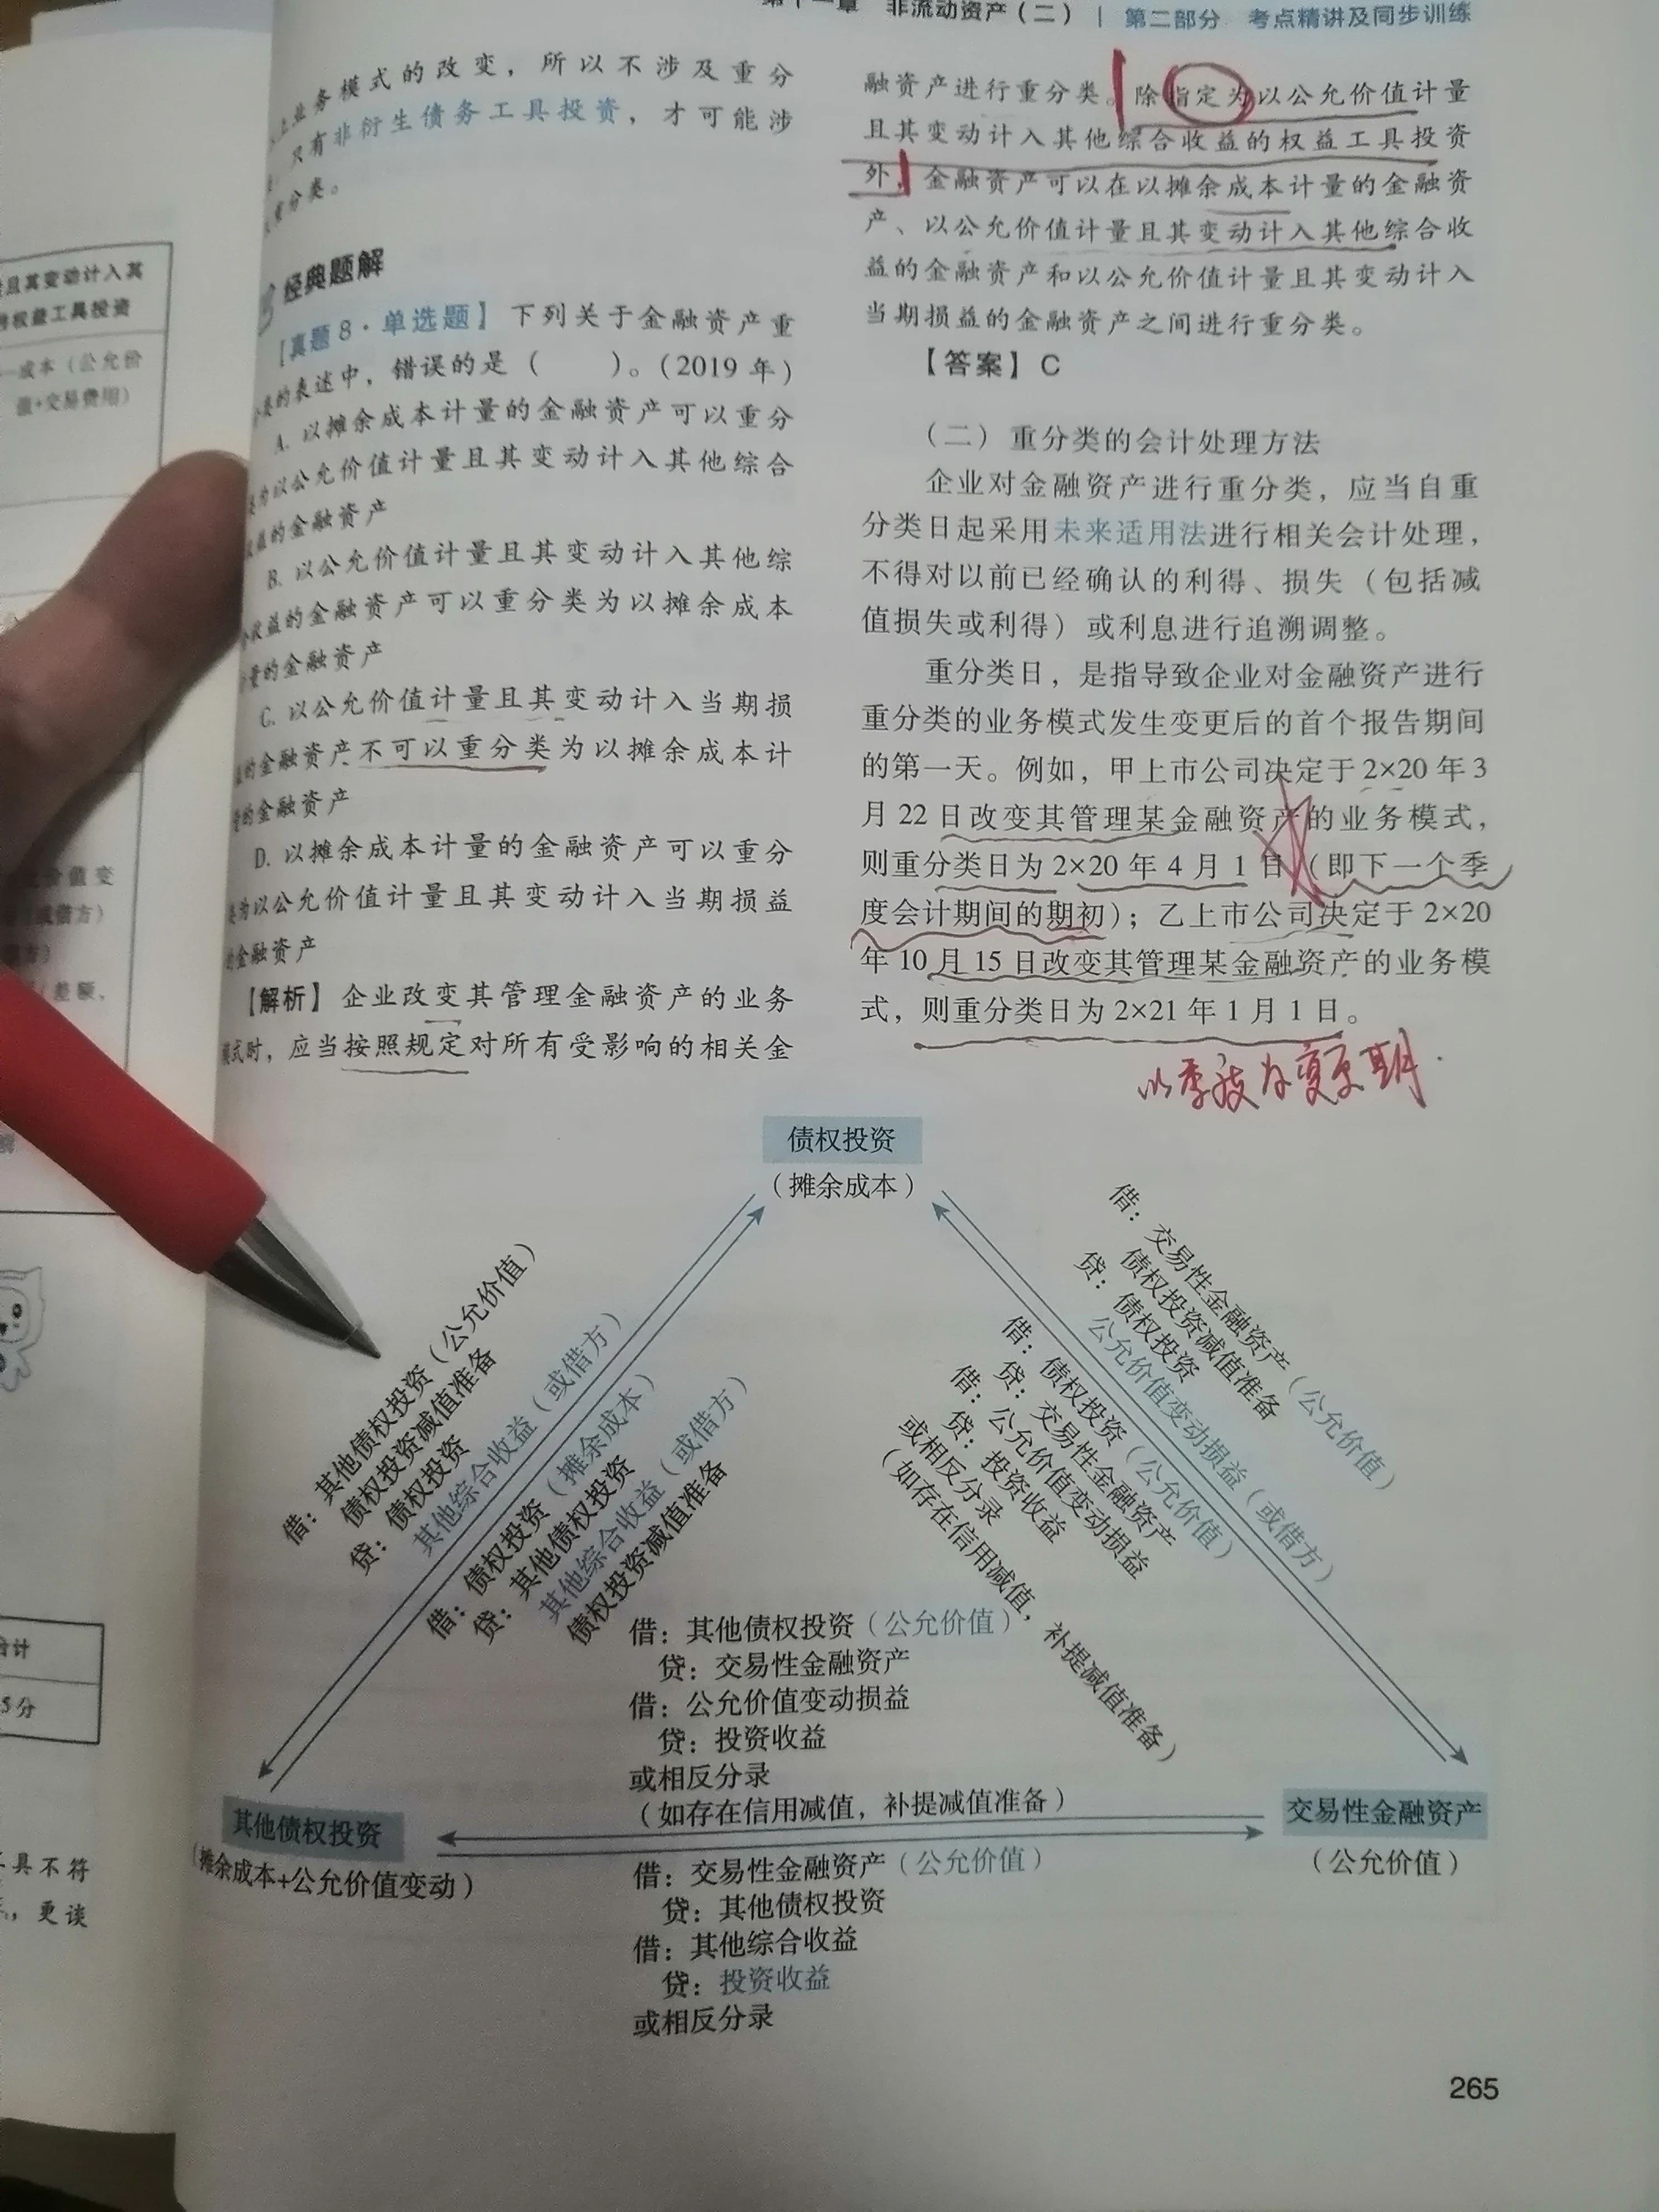 非流动资产（二）｜第二部分 考点精讲及同步训练
业务模式的改变，所以不涉及重分
只有非衍生债务工具投资，才可能涉
重分类。
经典题解
【真题8·单选题】下列关于金融资产重
的表述中，错误的是（ ）。（2019年）
A. 以摊余成本计量的金融资产可以重分
为以公允价值计量且其变动计入其他综合
的金融资产
B. 以公允价值计量且其变动计入其他综
收益的金融资产可以重分类为以摊余成本
的金融资产
C. 以公允价值计量且其变动计入当期损
的金融资产不可以重分类为以摊余成本计
的金融资产
D. 以摊余成本计量的金融资产可以重分
为以公允价值计量且其变动计入当期损益
的金融资产
【解析】企业改变其管理金融资产的业务
模式时，应当按照规定对所有受影响的相关金
融资产进行重分类。除指定为以公允价值计量
且其变动计入其他综合收益的权益工具投资
外，金融资产可以在以摊余成本计量的金融资
产、以公允价值计量且其变动计入其他综合收
益的金融资产和以公允价值计量且其变动计入
当期损益的金融资产之间进行重分类。
【答案】C
（二）重分类的会计处理方法
企业对金融资产进行重分类，应当自重
分类日起采用未来适用法进行相关会计处理，
不得对以前已经确认的利得、损失（包括减
值损失或利得）或利息进行追溯调整。
重分类日，是指导致企业对金融资产进行
重分类的业务模式发生变更后的首个报告期间
的第一天。例如，甲上市公司决定于2×20年3
月22日改变其管理某金融资产的业务模式，
则重分类日为2×20年4月1日（即下一个季
度会计期间的期初）；乙上市公司决定于2×20
年10月15日改变其管理某金融资产的业务模
式，则重分类日为2×21年1月1日。
以季度为变更期
债权投资
（摊余成本）
借：其他债权投资（公允价值）
债权投资减值准备
贷：债权投资
其他综合收益（或借方）
借：债权投资（摊余成本）
贷：其他债权投资
其他综合收益（或借方）
债权投资减值准备
借：交易性金融资产（公允价值）
债权投资减值准备
贷：债权投资
公允价值变动损益（或借方）
借：债权投资（公允价值）
贷：交易性金融资产
借：公允价值变动损益
贷：投资收益
或相反分录
（如存在信用减值，补提减值准备）
借：其他债权投资（公允价值）
贷：交易性金融资产
借：公允价值变动损益
贷：投资收益
或相反分录
（如存在信用减值，补提减值准备）
其他债权投资
（摊余成本+公允价值变动）
交易性金融资产
（公允价值）
借：交易性金融资产（公允价值）
贷：其他债权投资
借：其他综合收益
贷：投资收益
或相反分录
265
且其变动计入其
权益工具投资
成本（公允价
值+交易费用）
价值变
或借方）
差额，
合计
5分
具不符
，更谈